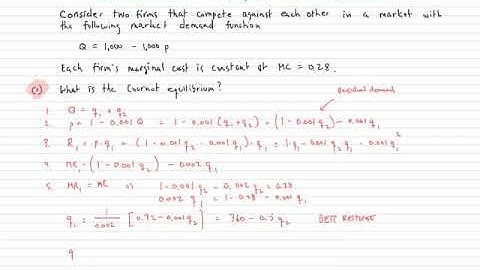 Consider two firms that compete against each other in a market with
the following market demand function
Q = 1,000 - 1,000 p
Each firm's marginal cost is constant at MC = 0.28.
(1) What is the Cournot equilibrium?
residual demand
1. Q = q1 + q2
2. p = 1 - 0.001 Q = 1 - 0.001 (q1 + q2) = (1 - 0.001 q2) - 0.001 q1
3. R1 = p · q1 = (1 - 0.001 q2 - 0.001 q1) · q1 = 1 q1 - 0.001 q2 q1 - 0.001 q1²
4. MR1 = (1 - 0.001 q2) - 0.002 q1
5. MR1 = MC ⇒ 1 - 0.001 q2 - 0.002 q1 = 0.28
0.002 q1 = 1 - 0.28 - 0.001 q2
q1 = 1/0.002 [0.72 - 0.001 q2] = 360 - 0.5 q2 BEST RESPONSE
q